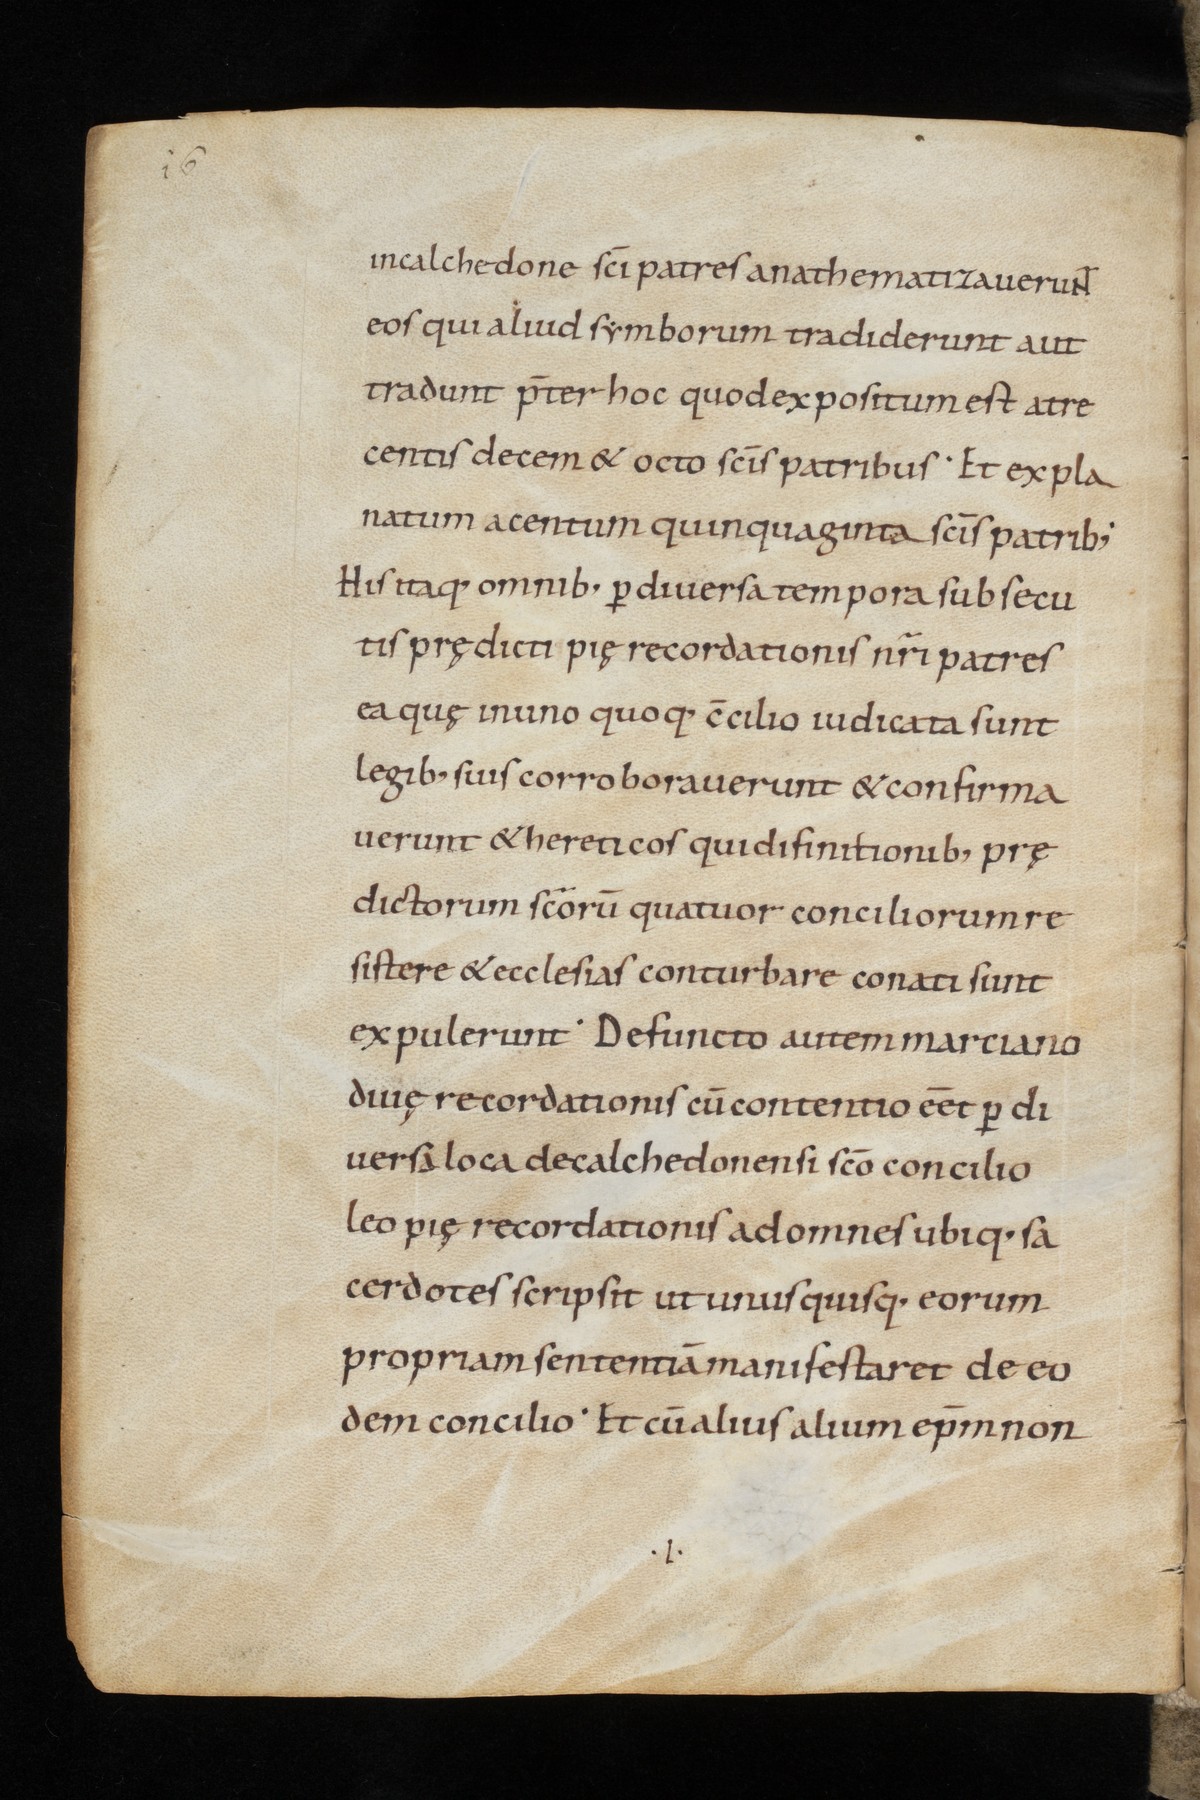 16
incalchedone sc̄i patres anathematizauerunt̄
eos qui aliud sẏmborum tradiderunt aut
tradunt p̄ter hoc quod expositum est atre
centis decem & octo sc̄is patribus · Et expla
natum acentum quinquaginta sc̄is patrib;
His itaq· omnib· ꝑ diuersa tempora subsecu
tis prędicti pię recordationis nr̄i patres
ea quę inuno quoq· c̄cilio iudicata sunt
legib, suis corroborauerunt & confirma
uerunt & hereticos qui difinitionib, prę
dictorum sc̄orū quatuor conciliorum re
sistere & ecclesias conturbare conati sunt
expulerunt · Defuncto autem marciano
diuię recordationis cū contentio eēt ꝑ di
uersa loca decalchedonensi sc̄o concilio
leo pię recordationis ad omnes ubiq· sa
cerdotes scripsit ut unusquisq· eorum
propriam sententiā manifestaret de eo
dem concilio · Et cū alius alium ep̄m non
·I·